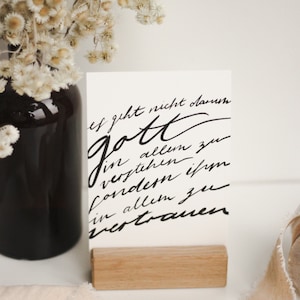 es geht nicht darum
gott
in allem zu
verstehen
sondern ihm
in allem zu
vertrauen